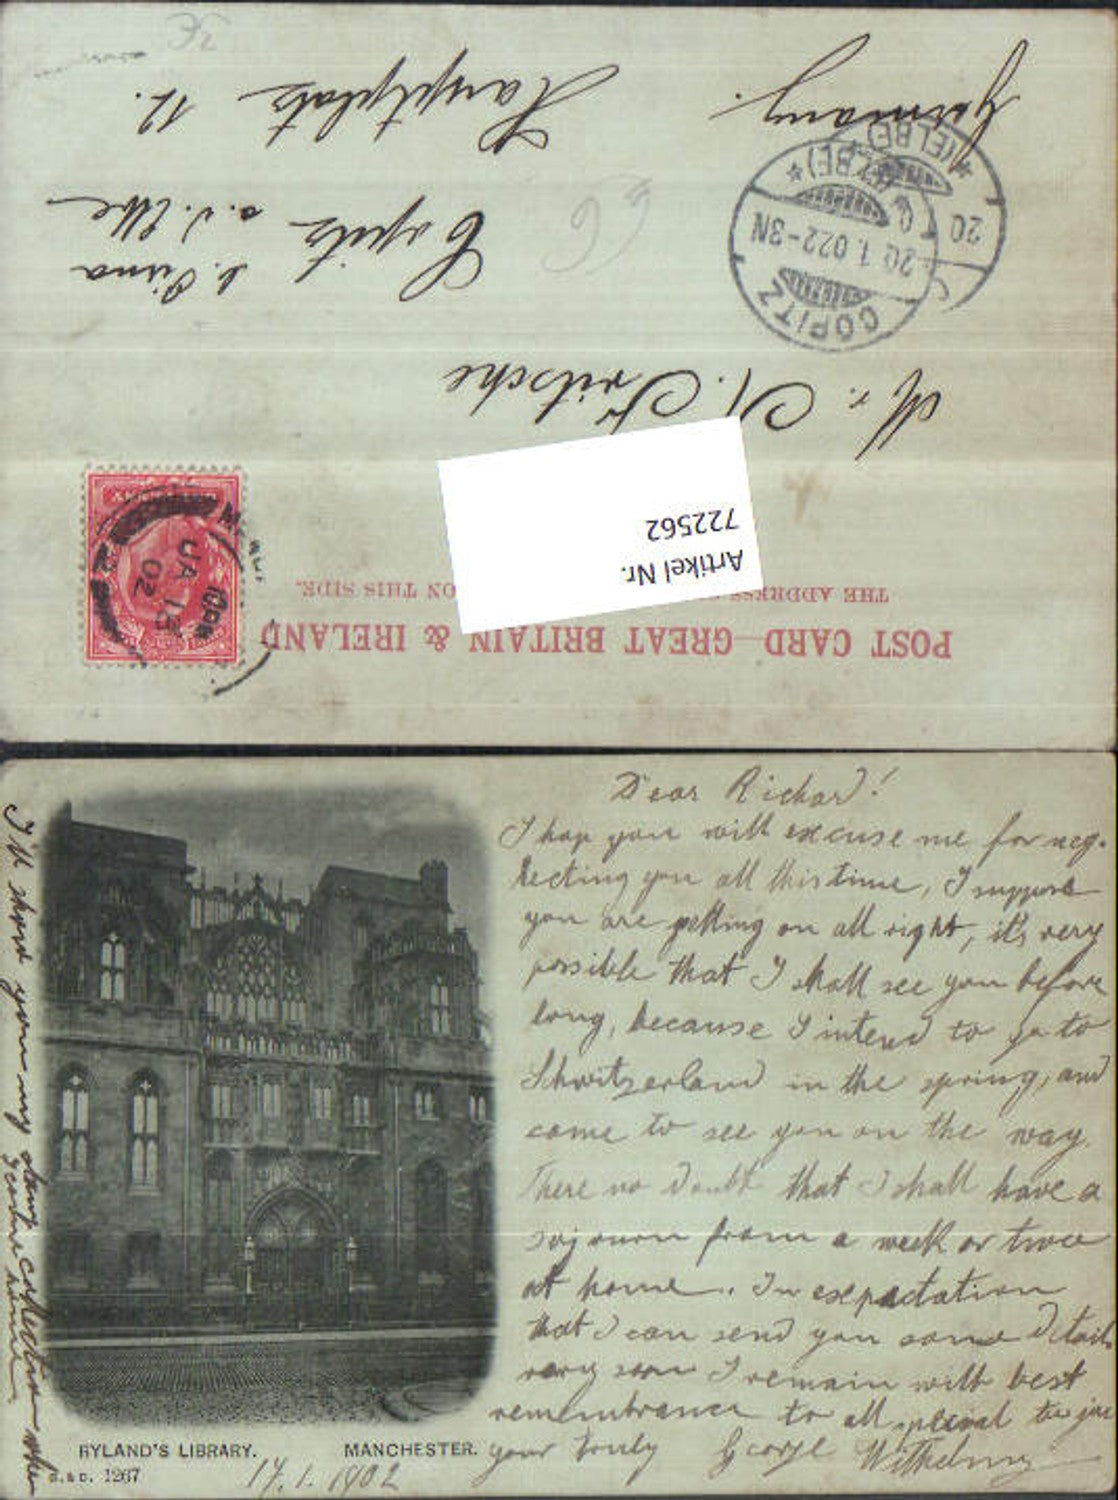 POST CARD—GREAT BRITAIN & IRELAND
THE ADDRESS ON THIS SIDE.
Artikel Nr.
722562
JA 18
02
Mr. R. Fritsche
COPITZ
20 1. 02 2-3N
*(ELBE)*
Copitz b. Pirna
a. d. Elbe
Hauptplatz 12.
Germany.
Dear Richard!
I hop you will excuse me for neg-
lecting you all this time, I suppose
you are getting on all right, it's very
possible that I shall see you before
long, because I intend to go to
Shwitzerland in the spring, and
come to see you on the way.
There no doubt that I shall have a
sojourn from a week or two
at home. In expectation
that I can send you some details
very soon I remain with best
remembrance to all special to you
your truly George
RYLAND'S LIBRARY. MANCHESTER.
1267
17.1.1902
I'll show you my collection when
I come home.